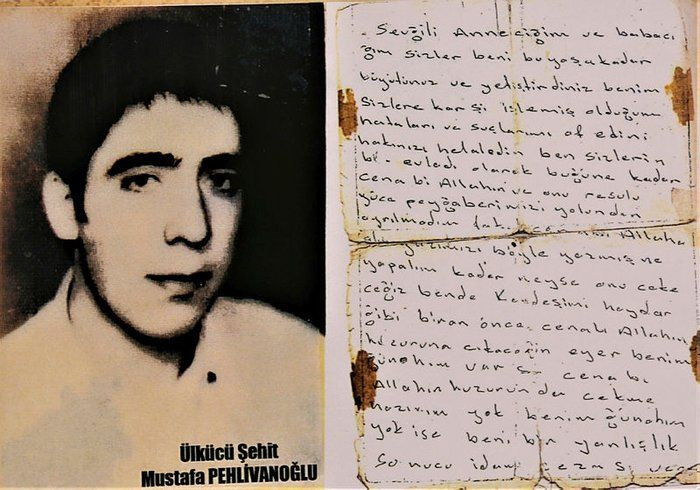 Sevgili Anneciğim ve babacı
ğım sizler beni bu yaşa kadar
büyütünüz ve yetiştirdiniz benim
sizlere karşı işlemiş olduğum
hataları ve suçlarımı af edin
hakınızı helal edin ben sizlerin
bi. evladı olarak bugüne kadar
cena bi Allahın ve onu resulu
yüce peygaberimizi yolundan
ayrılmadım Allaha
yazımızı böyle yazmış ne
yapalım kader neyse onu çeke
ceğiz bende Kardeşimi haydar
gibi biran önce cenabı Allahın
huzuruna çıkacağım eyer benim
günahım var sa cena bi
Allahın huzurunda çekme
hazırım yok benim günahım
yok ise beni bir yanlışlık
sonucu idam
Ülkücü Şehit
Mustafa PEHLİVANOĞLU